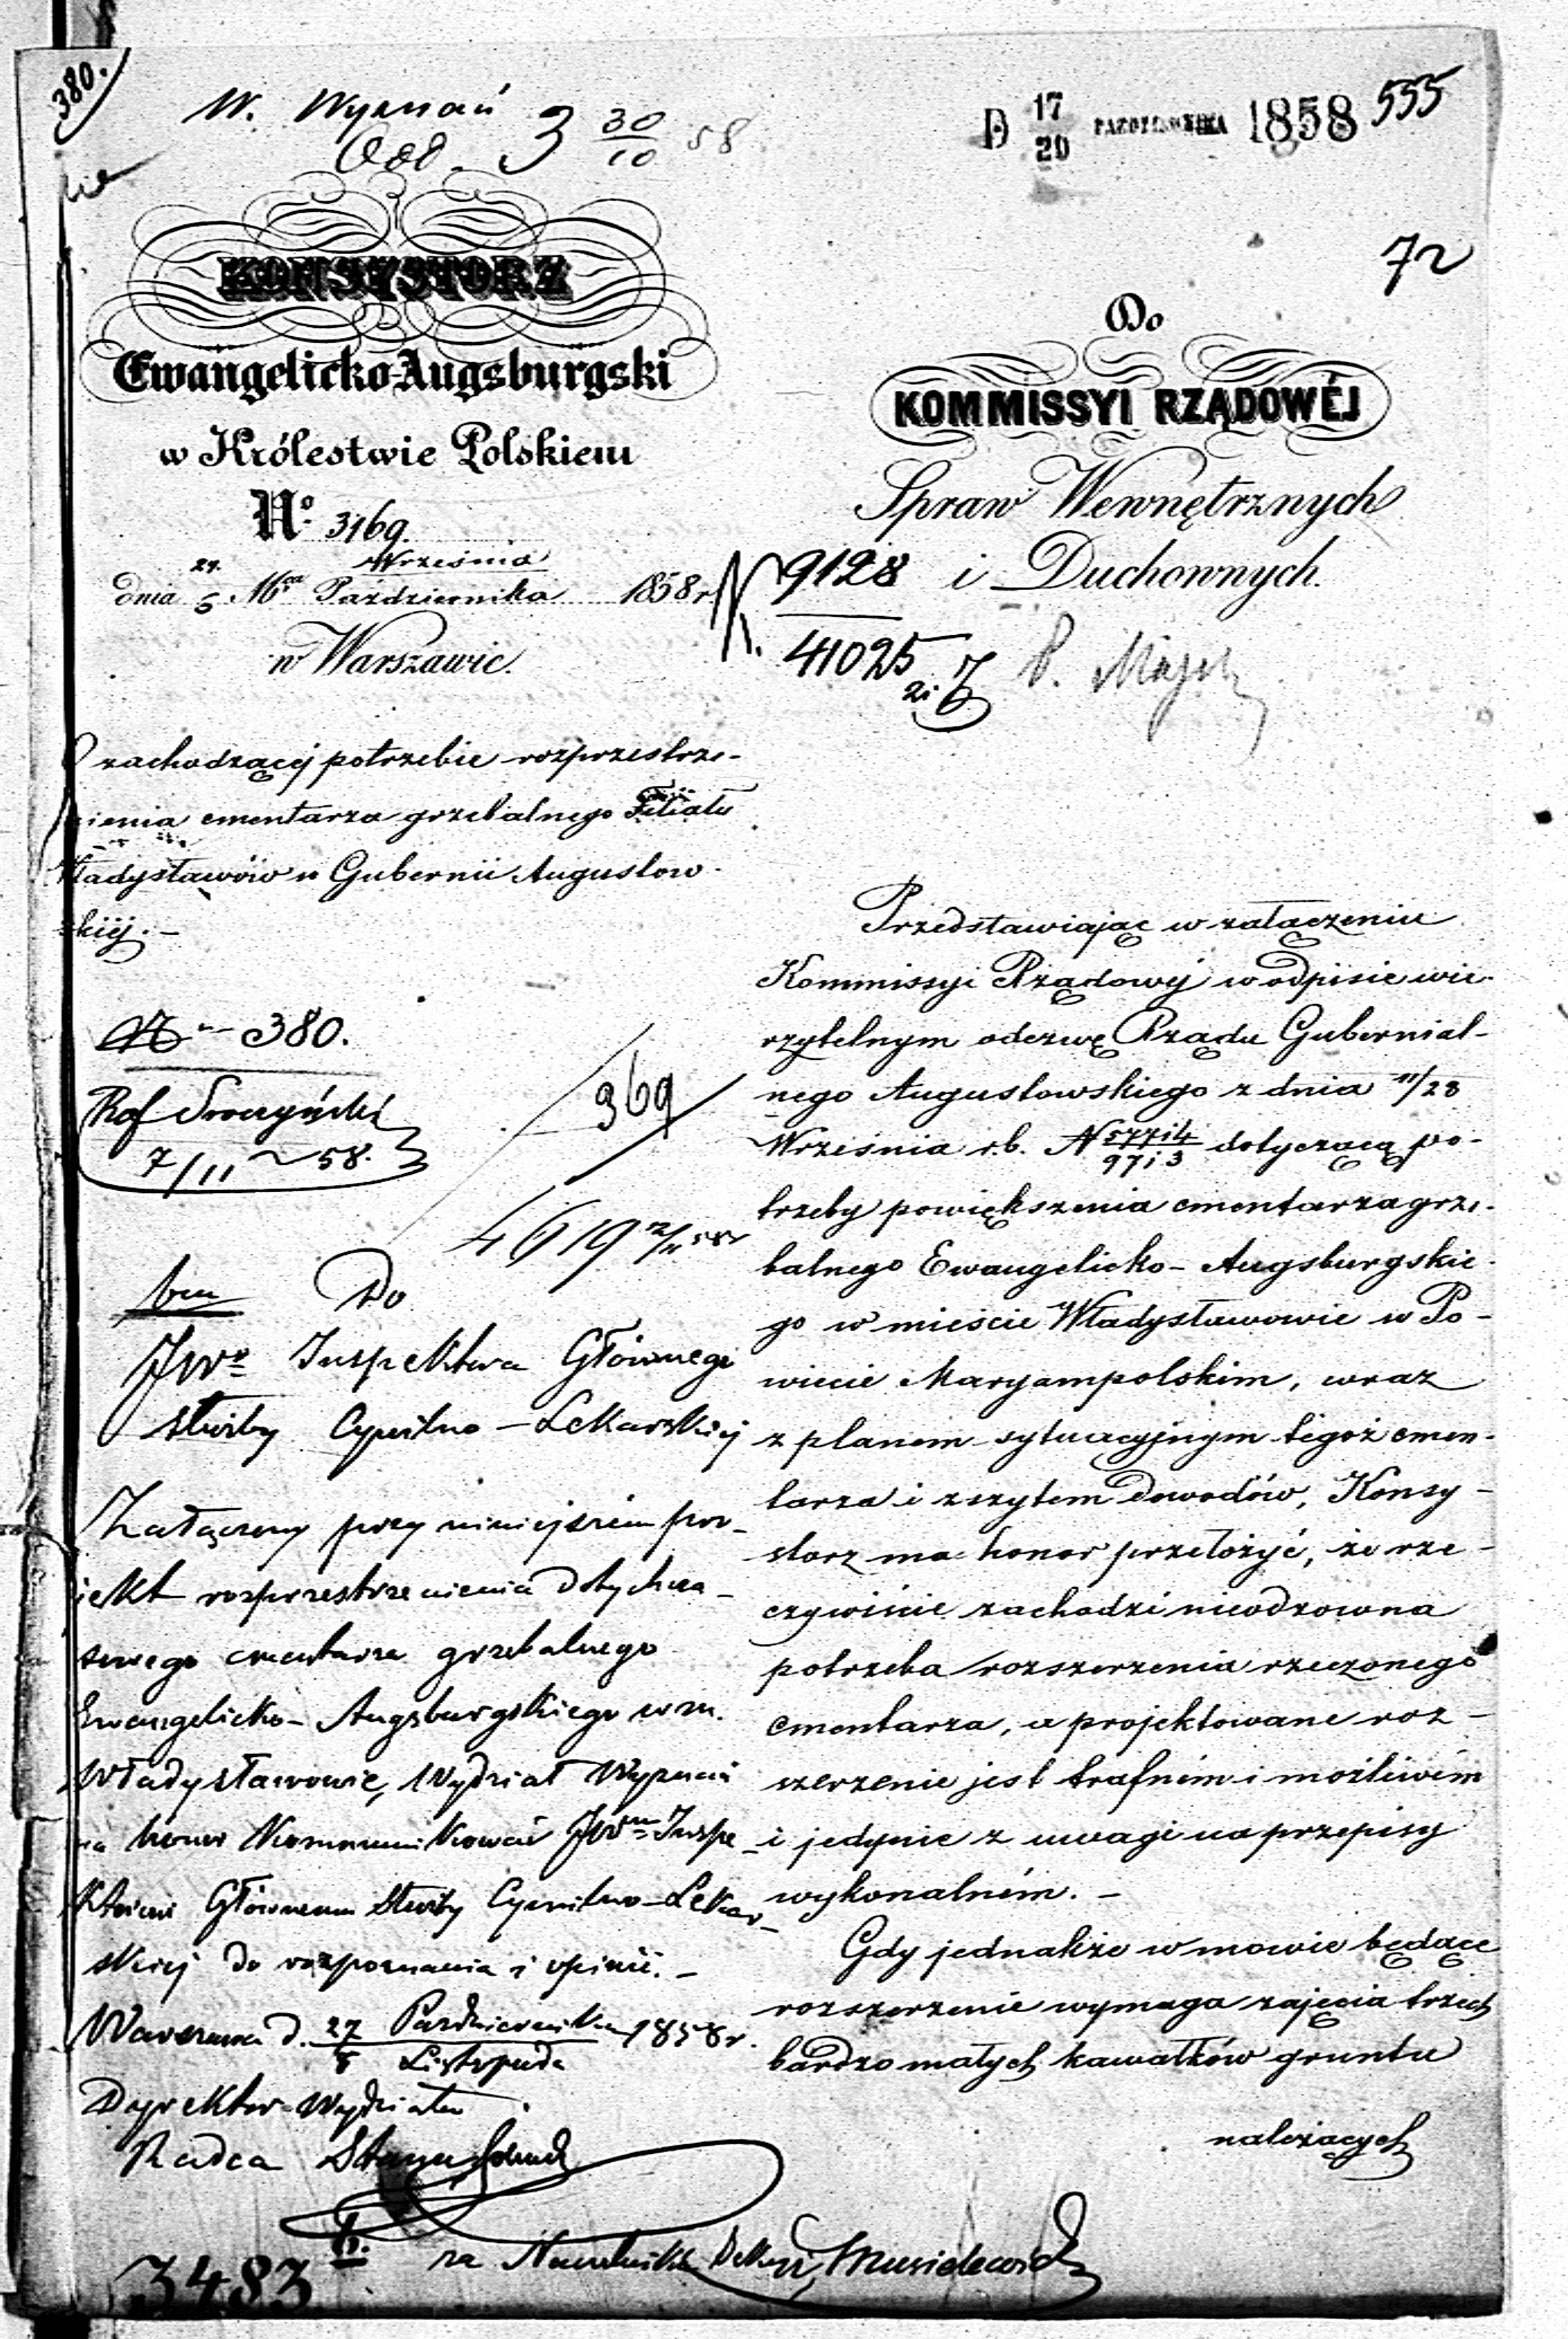 380.
W. Wyznań
Odd. 3 30/10 58
D 17/29 PAZDZIERNIKA 1858
555
72
KONSYSTORZ
Ewangelicko-Augsburgski
w Królestwie Polskiem
No. 3169.
24. Września
dnia 6 Mca Października 1858 r.
w Warszawie.
O zachodzącej potrzebie rozprzestrze-
nienia cmentarza grzebalnego Filiału
Władysławów w Gubernii Augustow-
skiej. –
380.
7/11 58.
369
4619 12/11 58
Do
JWo Inspektora Głównego
Służby Cywilno-Lekarskiej
Załączony przy niniejszem pro-
jekt rozprzestrzenienia dotychcza-
sowego cmentarza grzebalnego
Ewangelicko-Augsburgskiego w m.
Władysławowie, Wydział Wyznań
ma honor kommunikować JWmu Inspe-
ktorowi Głównemu Służby Cywilno-Lekar-
skiej do rozpoznania i opinii. –
Warszawa d. 27 Października / 8 Listopada 1858 r.
Dyrektor Wydziału
Radca Stanu
za Naczelnika Sekcyi,
3483
Do
KOMMISSYI RZĄDOWÉJ
Spraw Wewnętrznych
i Duchownych.
N. 9128
41025
Przedstawiając w załączeniu
Kommissyi Rządowej w odpisie wie-
rzytelnym odezwę Rządu Gubernial-
nego Augustowskiego z dnia 11/23
Września r.b. N 57714/9713 dotyczącą po-
trzeby powiększenia cmentarza grze-
balnego Ewangelicko-Augsburgskie-
go w mieście Władysławowie w Po-
wiecie Maryampolskim, wraz
z planem sytuacyjnym tegoż cmen-
tarza i zszytem dowodów, Konsy-
storz ma honor przełożyć, że rze-
czywiście zachodzi nieodzowna
potrzeba rozszerzenia rzeczonego
cmentarza, a projektowane roz-
szerzenie jest trafném i możliwém
i jedynie z uwagi na przepisy
wykonalném. –
Gdy jednakże w mowie będące
rozszerzenie wymaga zajęcia trzech
bardzo małych kawałków gruntu
należących